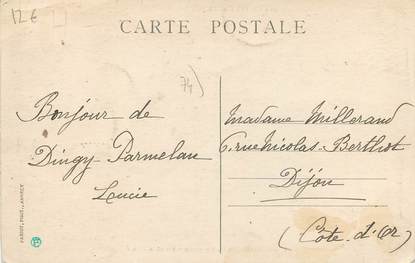 12 €
CARTE POSTALE
74)
Bonjour de
Dingy Parmelan
Lucie
Madame Millerand
6. rue Nicolas-Berthot
Dijon
(Côte. d'Or)
PARDT, PHOT., ANNECY